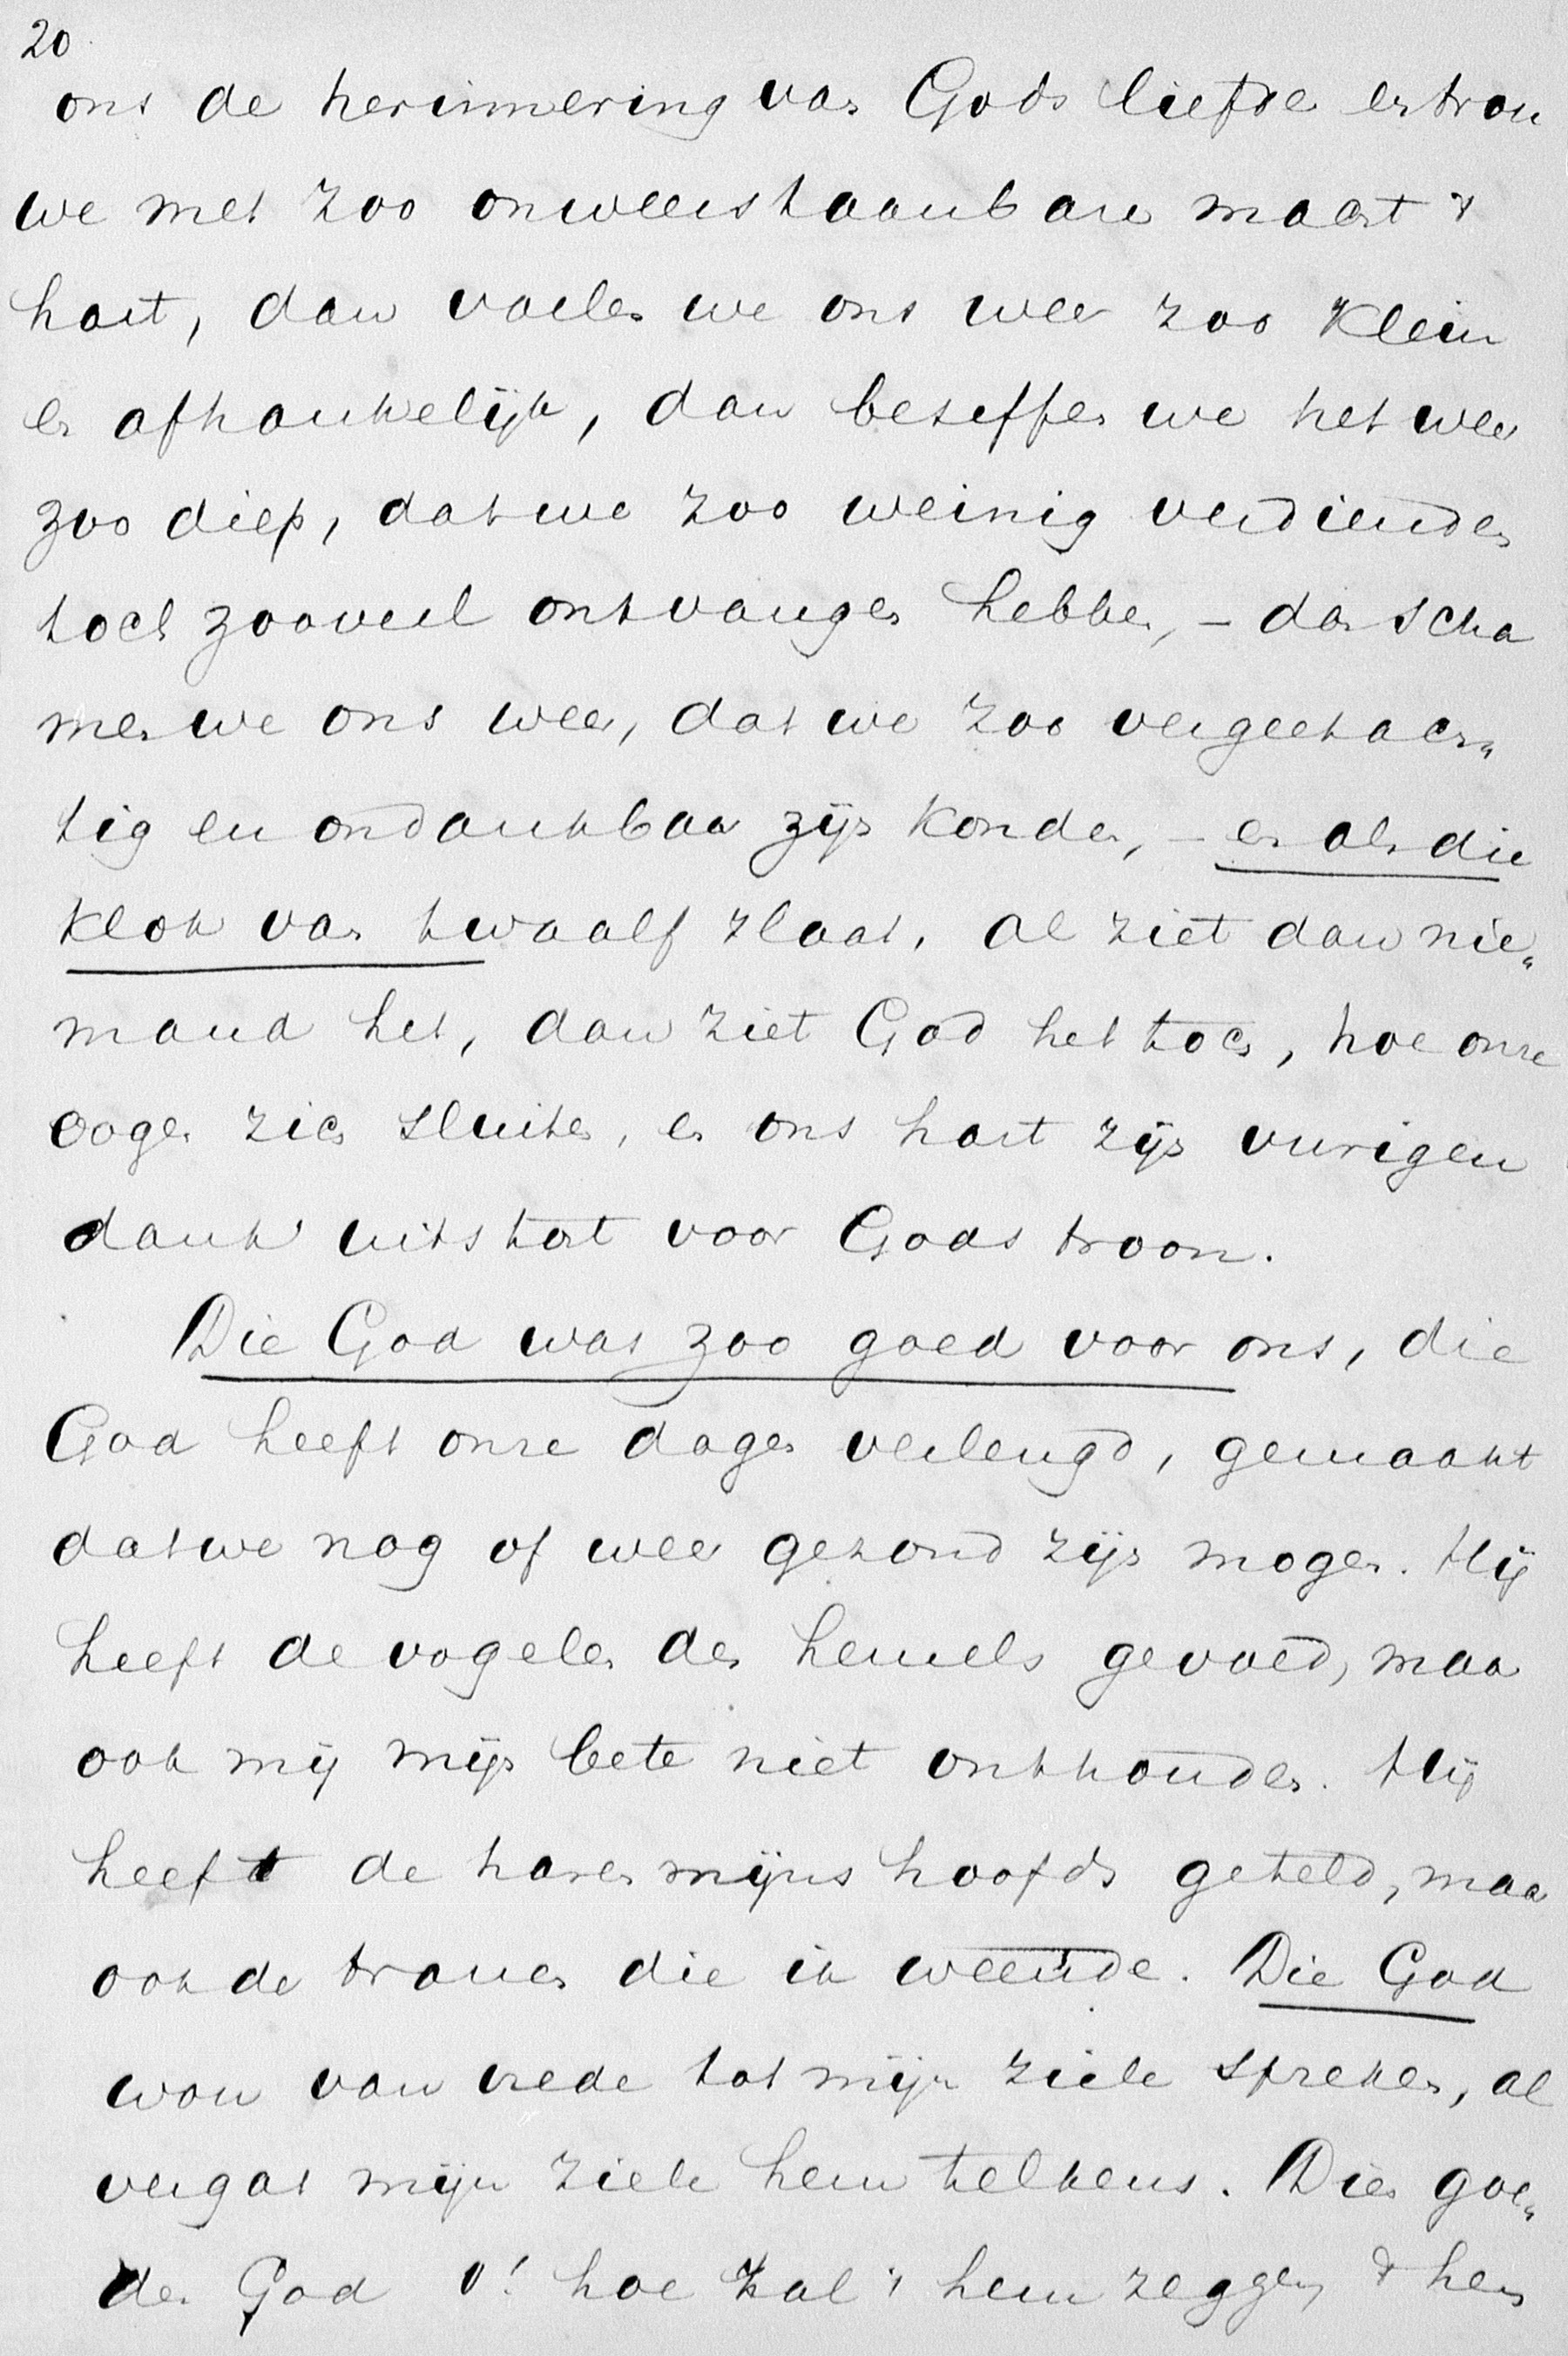 20
ons de herinnering van Gods liefde en trou
we met zoo onweerstaanbare macht 't
hart, dan voelen we ons weer zoo klein
en afhankelijk, dan beseffen we het weer
zoo diep, dat we zoo weinig verdienden
toch zooveel ontvangen hebben, – dan scha
men we ons weer, dat we zoo vergeetach„
tig en ondankbaar zijn konden, – en als die
klok van twaalf slaat. Al ziet dan nie„
mand het, dan ziet God het toch, hoe onze
oogen zich sluiten, en ons hart zijn vurigen
dank uitstort voor Gods troon.
Die God was zoo goed voor ons, die
God heeft onze dagen verlengd, gemaakt
dat we nog of weer gezond zijn mogen. Hij
heeft de vogelen des hemels gevoed, maar
ook mij mijn bete niet onthouden. Hij
heeft de haren mijns hoofds geteld, maar
ook de tranen die ik weende. Die God
wou van vrede tot mijn ziele spreken, al
vergat mijn ziele hem telkens. Dien goe„
den God o! hoe zal 't hem zeggen 't hem